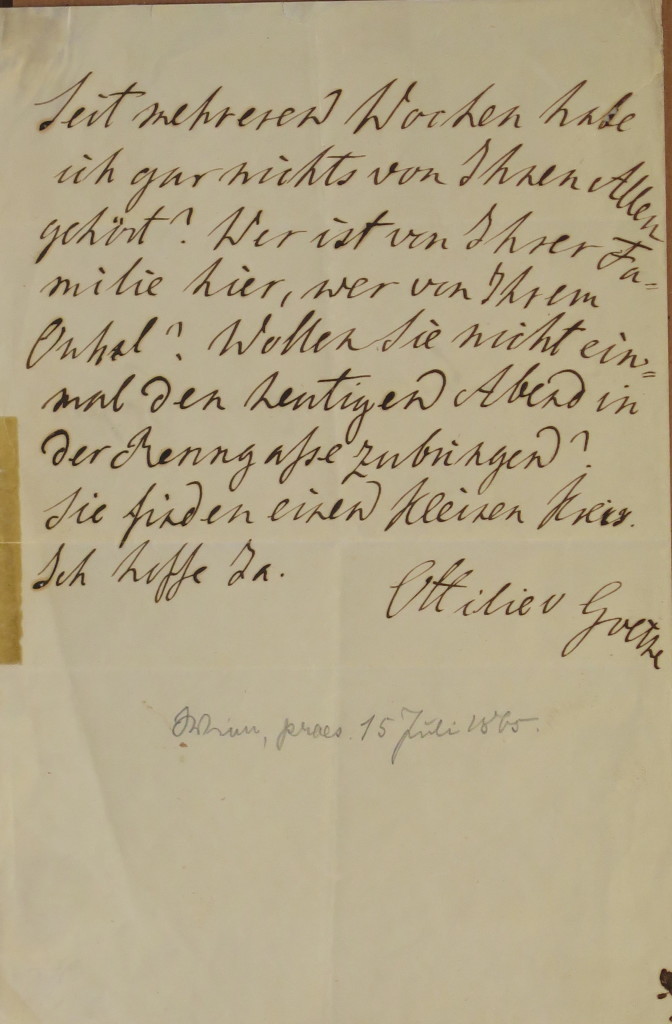 Seit mehreren Wochen habe
ich gar nichts von Ihnen Allen
gehört? Wer ist von Ihrer Fa=
milie hier, wer von Ihrem
Onkel? Wollen Sie nicht ein=
mal den heutigen Abend in
der Renngaße zubringen?
Sie finden einen kleinen Kreis.
Ich hoffe Ja.
Ottilie v Goethe
Wien, praes. 15 Juli 1865.